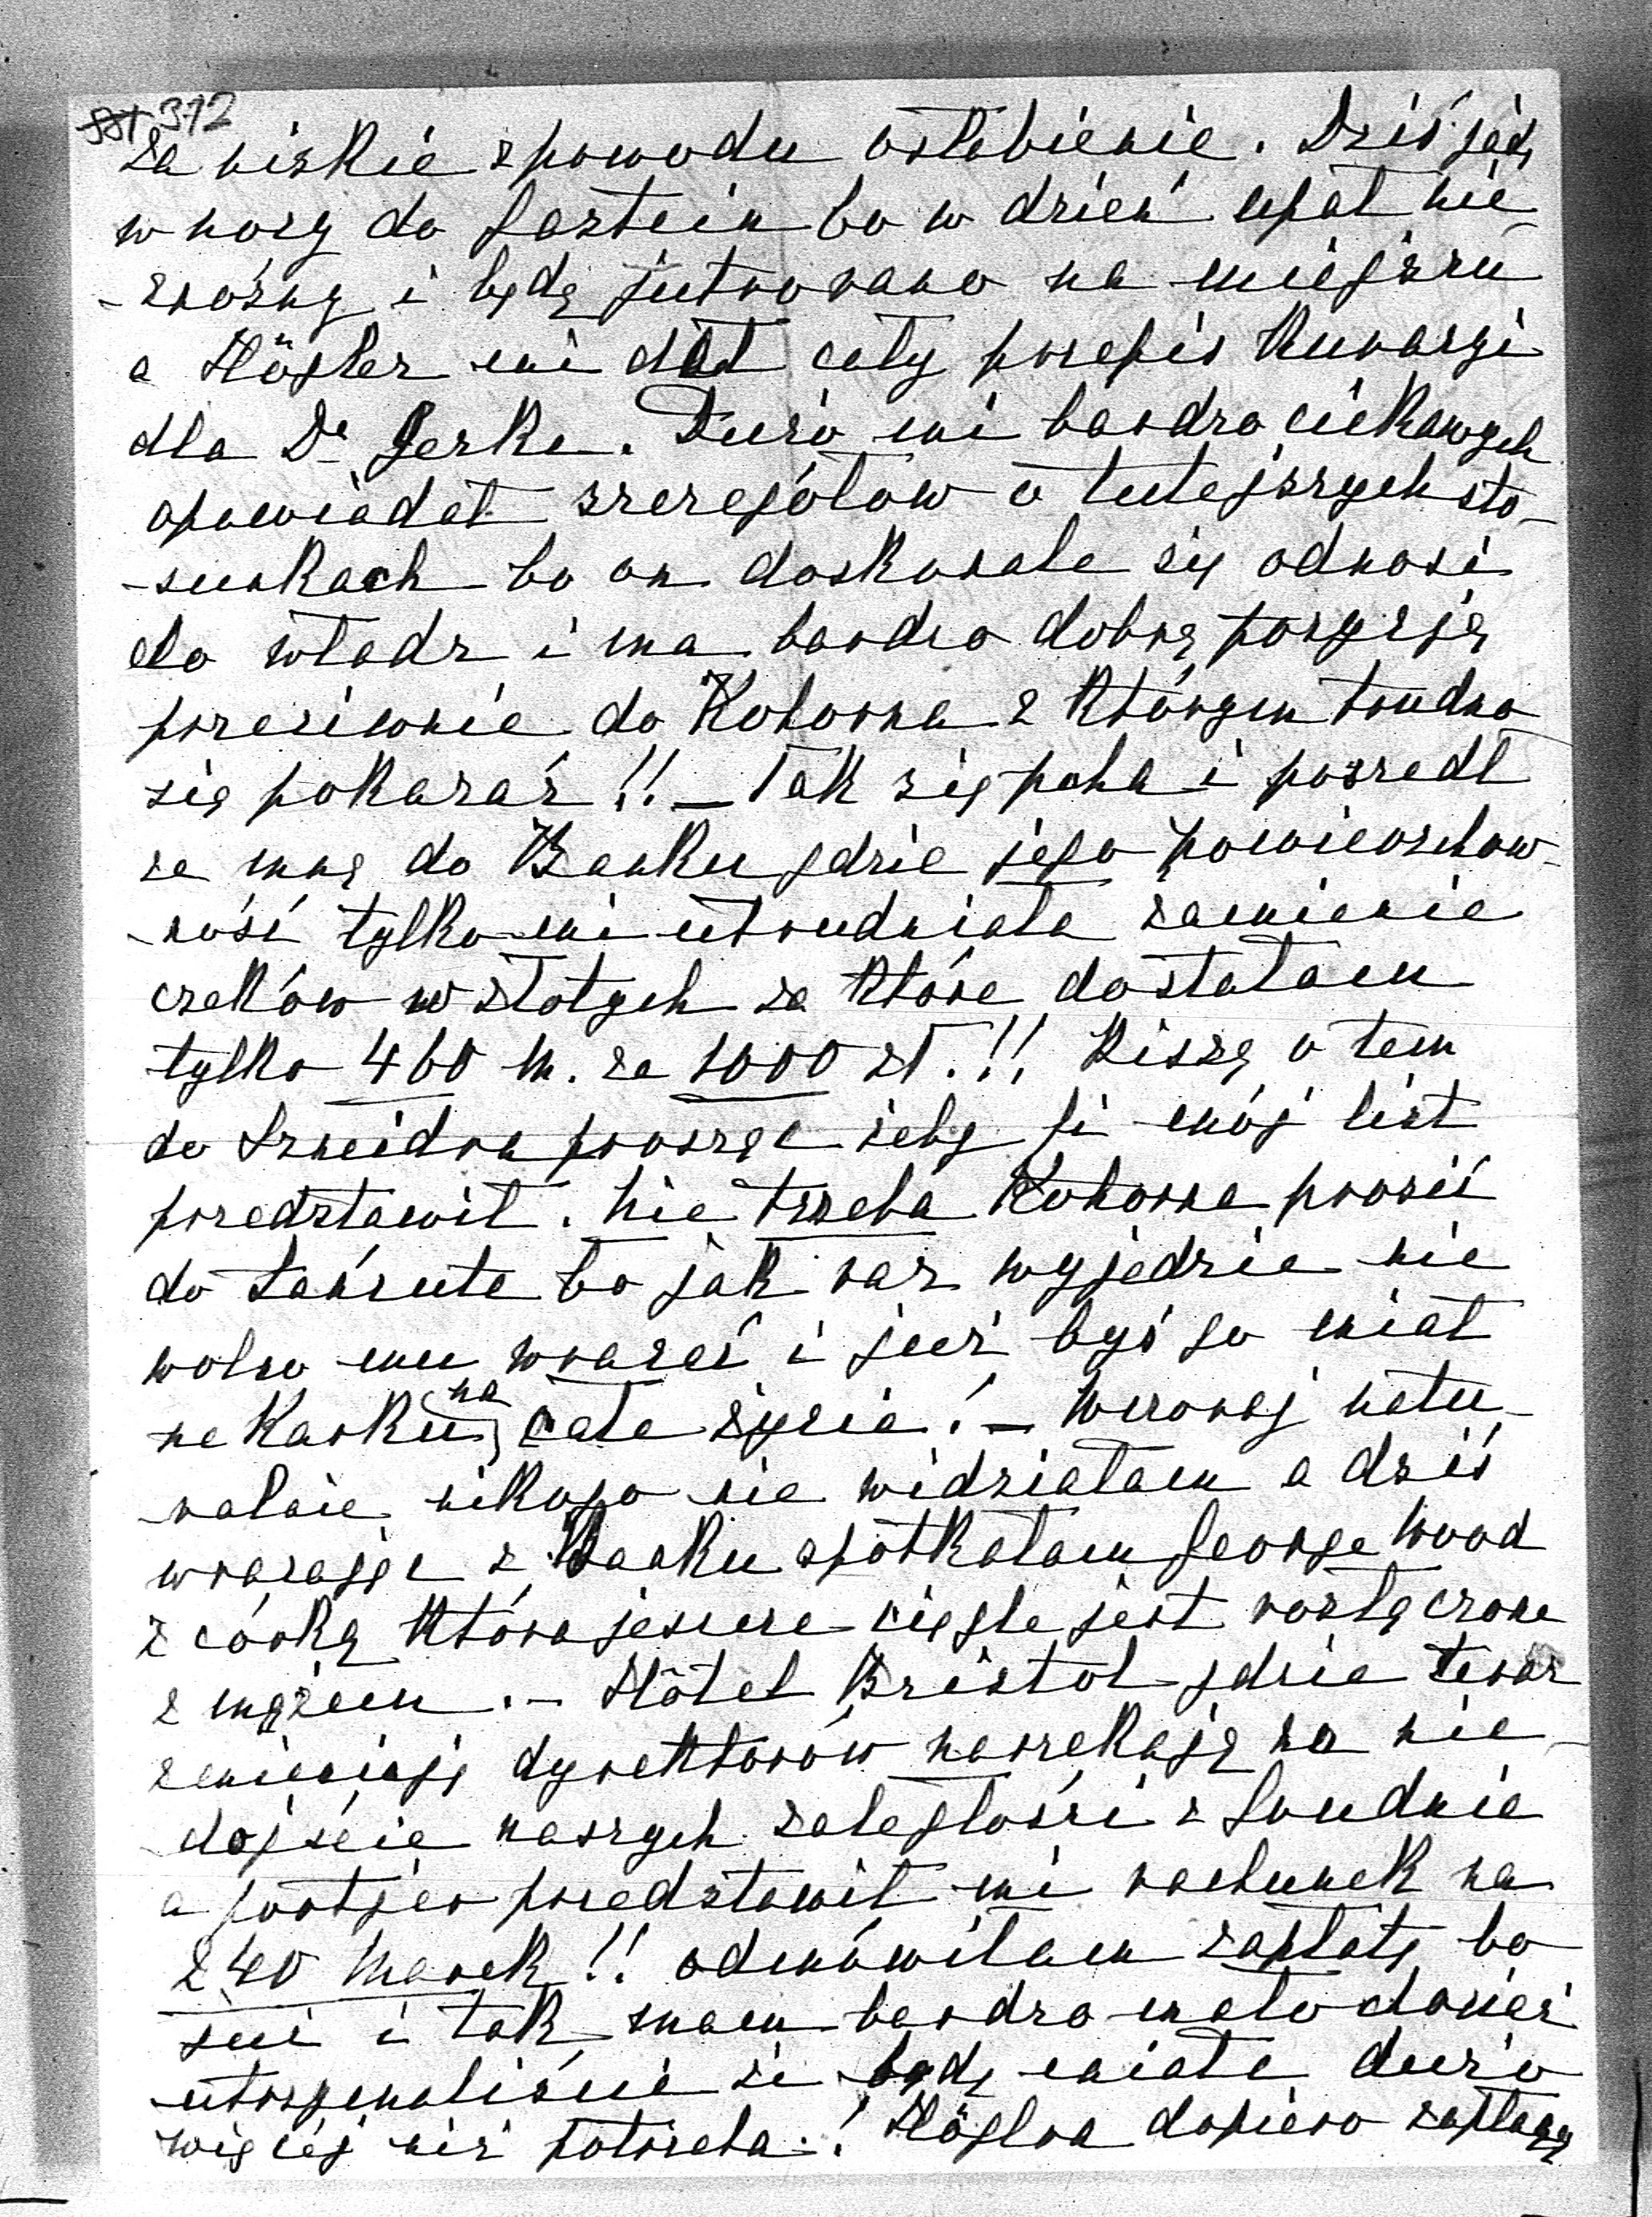 331 312
za niskie z powodu osłabienie. Dziś jadę
w nocy do Gastein bo w dzień upał nie-
-znośny i będę jutro rano na miejscu
a Högler mi dał cały przepis Kuracyi
dla Dr Gerke. Dużo mi bardzo ciekawych
opowiadał szczegółów o tutejszych sto-
-sunkach bo on doskonale się odnosi
do władz i ma bardzo dobrą pozycję
przeciwnie do Kohorna z którym trudno
się pokazać!! – Tak się pcha i poszedł
ze mną do Banku gdzie jego powierzchow-
-ność tylko mi utrudniała zamienie
czeków w złotych za które dostałam
tylko 460 M. za 1000 zł.!! Piszę o tem
do Szneidra prosząc żeby Ci mój list
przedstawił. Nie trzeba Kohorna prosić
do Łańcuta bo jak raz wyjedzie nie
wolno mu wracać i już byś go miał
na karku na całe życie! – Wczoraj natu-
-ralnie nikogo nie widziałam a dziś
wracając z Banku spotkałam George Wood
z córką która jeszcze ciągle jest rozłączona
z mężem. – Hôtel Bristol gdzie teraz
zmieniają dyrektorów narzekają na nie-
-dojście naszych zaległości z Grudnia
a portjer przedstawił mi rachunek na
240 Marek!! odmówiłam zapłaty bo
jui i tak mam bardzo mało chociaż
utrzymaliście że będę miała dużo
więcej niż potrzeba! Höglra dopiero zapłacę